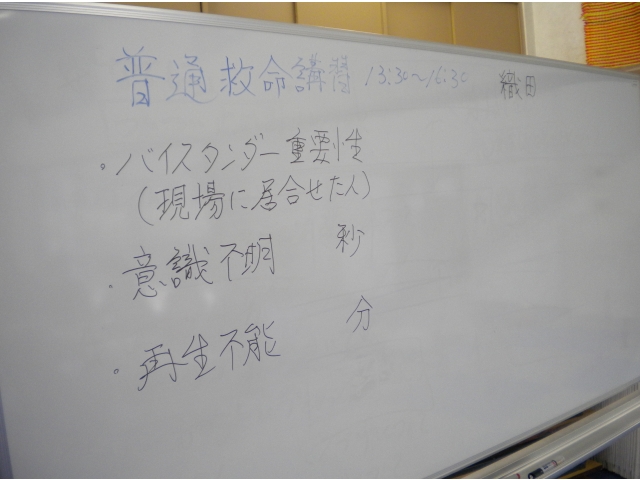 普通救命講習 13:30～16:30 織田
・バイスタンダー重要性
(現場に居合せた人)
・意識不明 秒
・再生不能 分